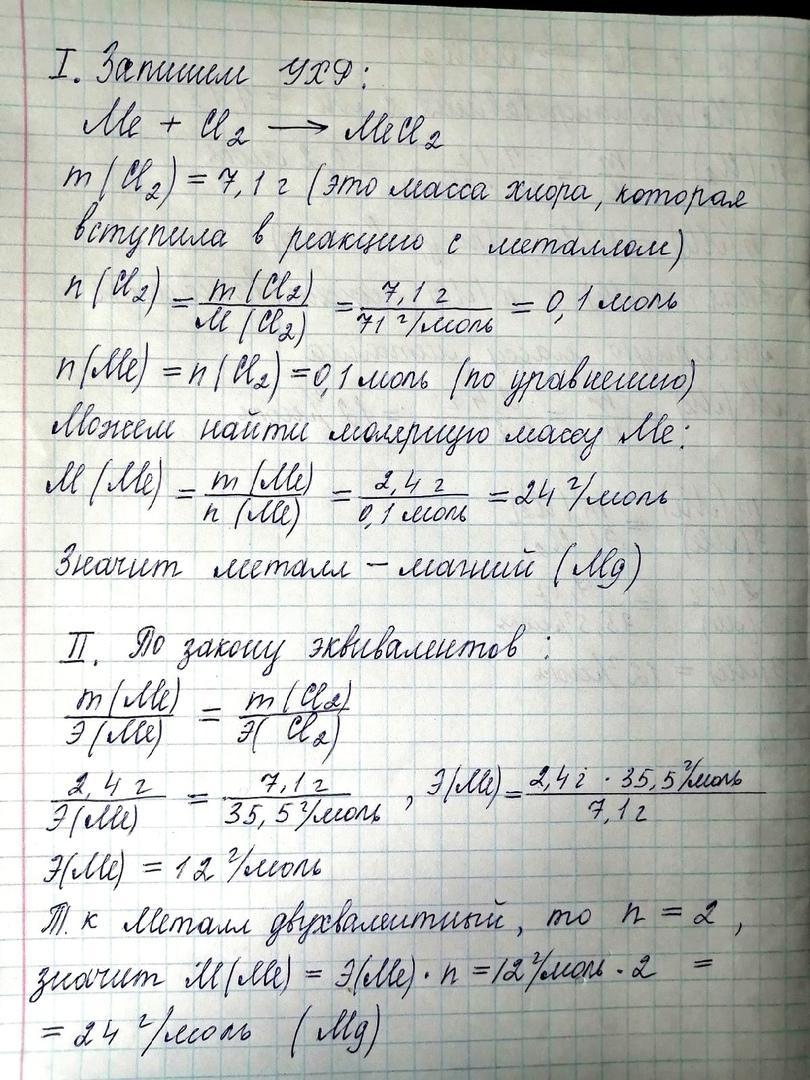 I. Запишем УХР:
Me + Cl₂ ⟶ MeCl₂
m(Cl₂) = 7,1 г (это масса хлора, которая
вступила в реакцию с металлом)
n(Cl₂) = m(Cl₂) / M(Cl₂) = 7,1 г / 71 г/моль = 0,1 моль
n(Me) = n(Cl₂) = 0,1 моль (по уравнению)
Можем найти молярную массу Me:
M(Me) = m(Me) / n(Me) = 2,4 г / 0,1 моль = 24 г/моль
Значит металл – магний (Mg)
II. По закону эквивалентов:
m(Me) / Э(Me) = m(Cl₂) / Э(Cl₂)
2,4 г / Э(Me) = 7,1 г / 35,5 г/моль , Э(Me) = 2,4 г · 35,5 г/моль / 7,1 г
Э(Me) = 12 г/моль
Т.к металл двухвалентный, то n = 2,
значит M(Me) = Э(Me) · n = 12 г/моль · 2 =
= 24 г/моль (Mg)